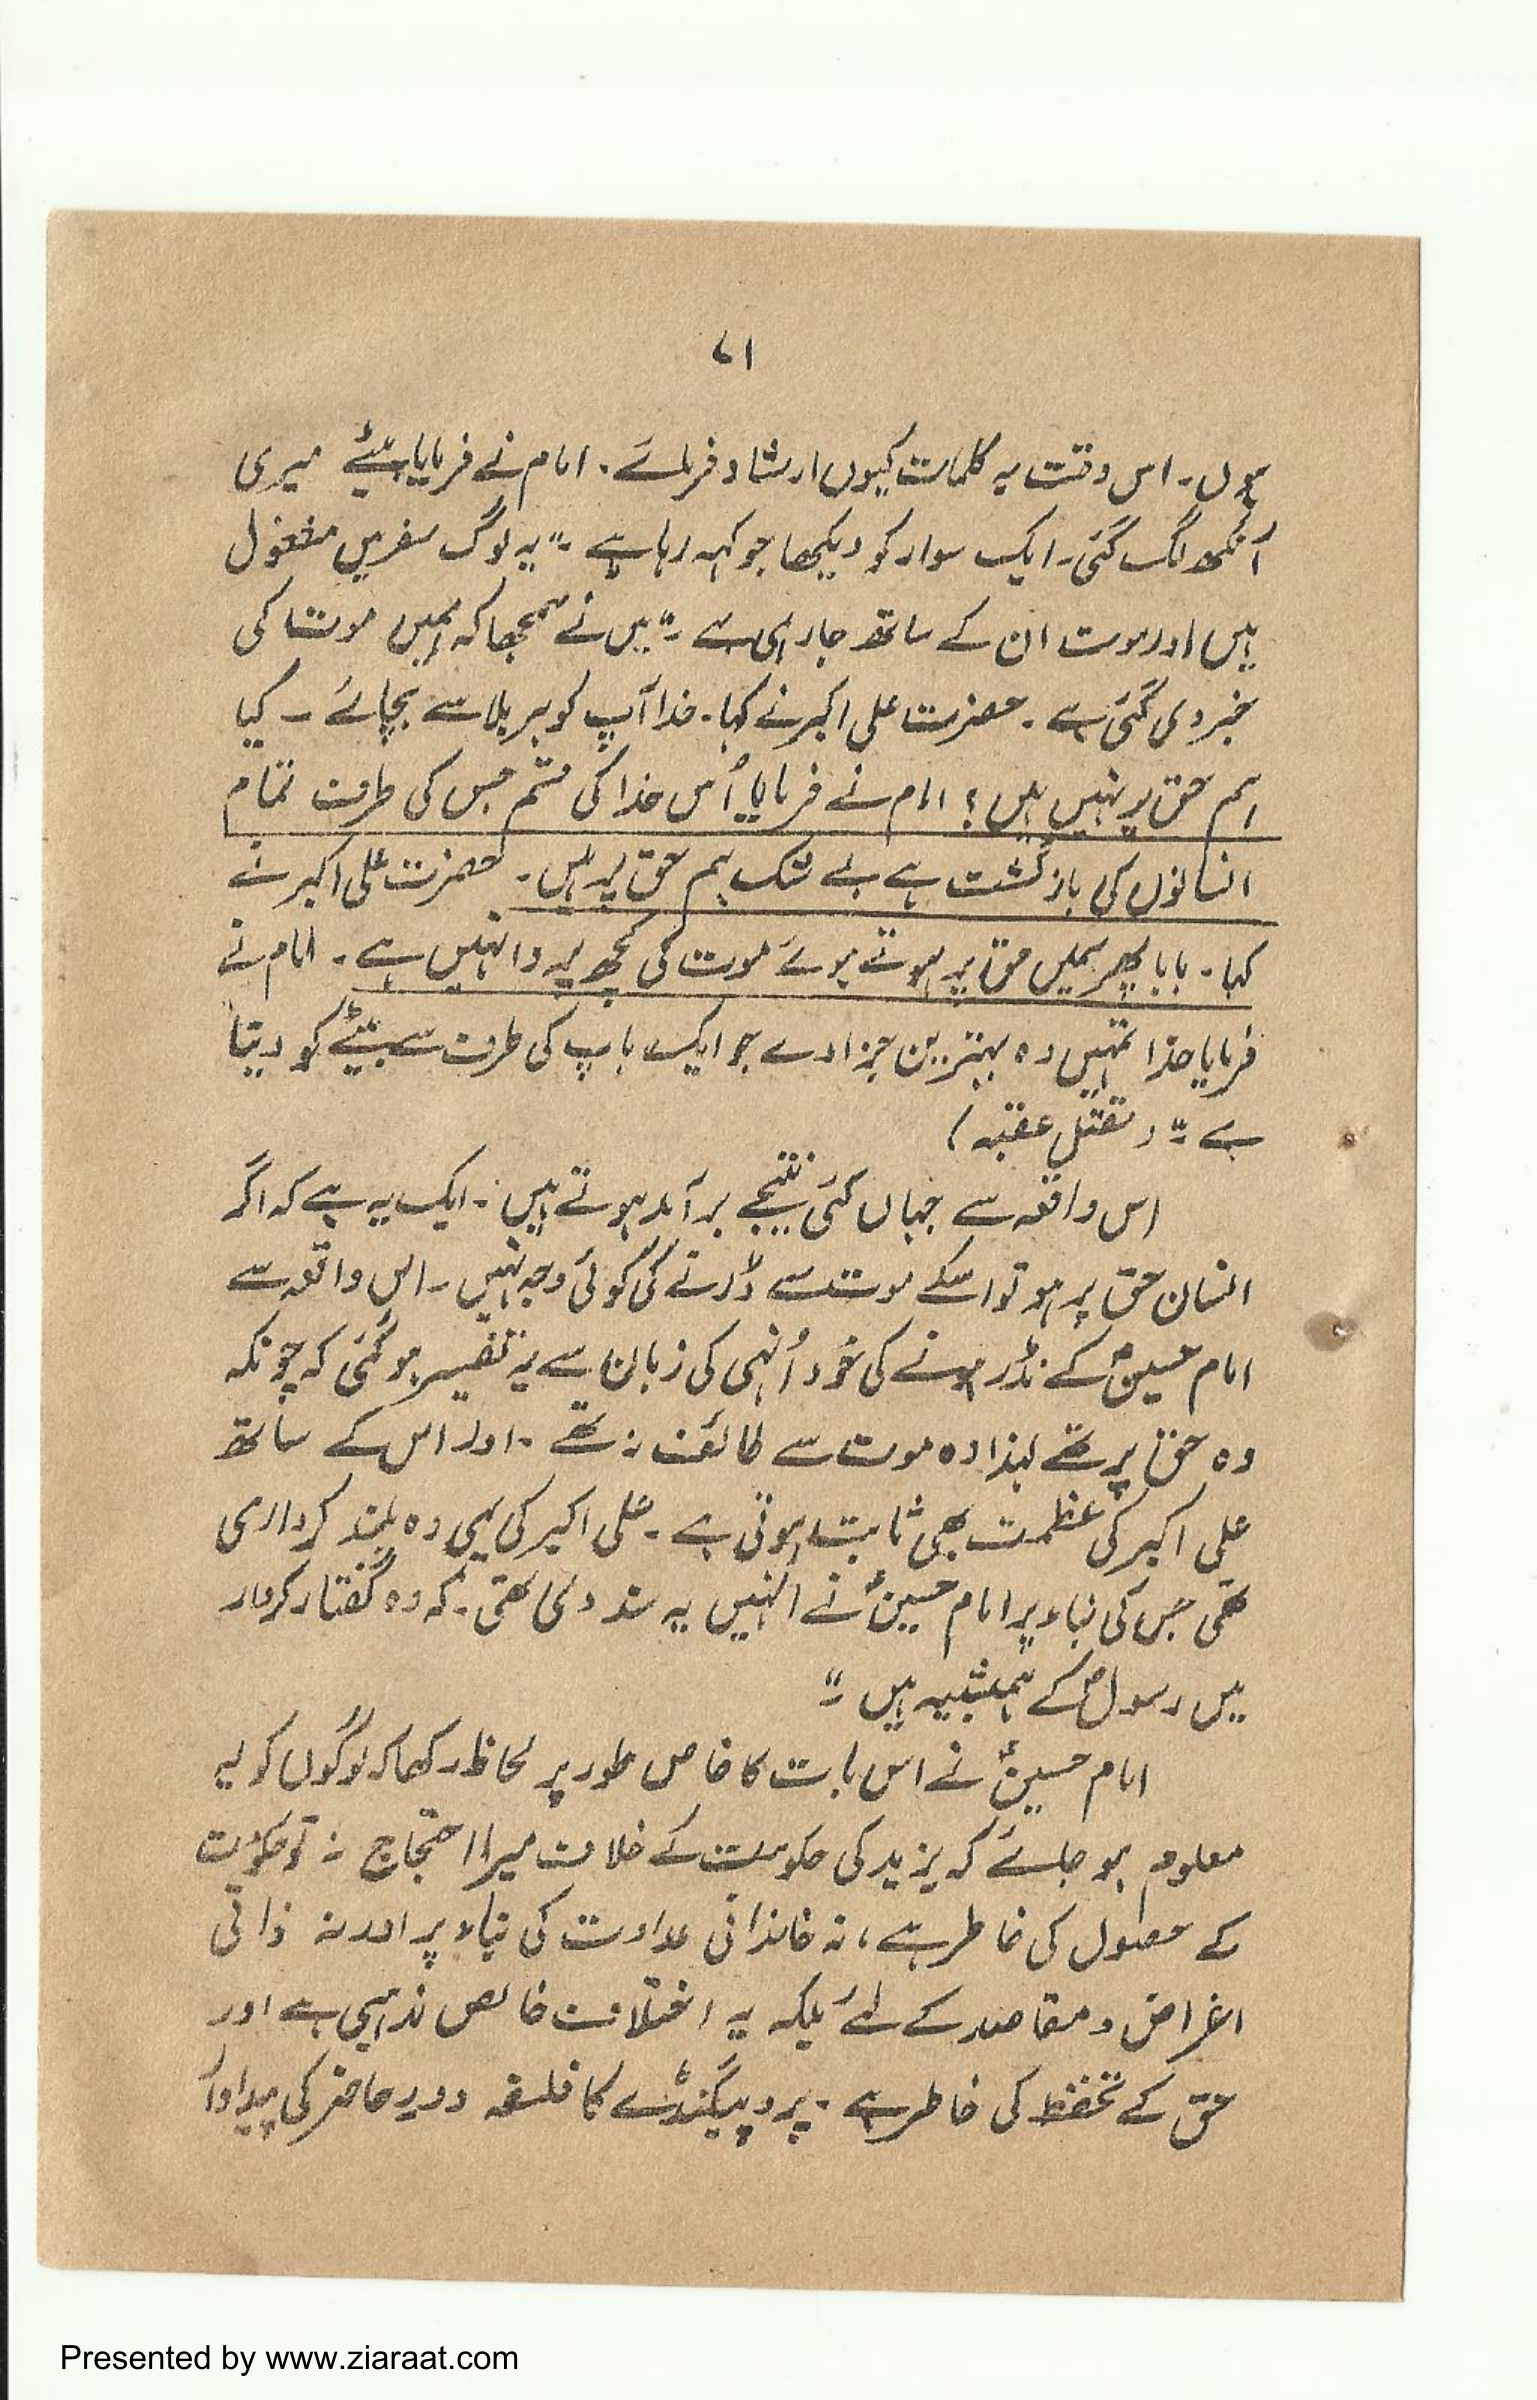 ۷۱
ہوں۔ اس وقت یہ کلمات کیوں ارشاد فرمائے۔ امام نے فرمایا بیٹے میری
آنکھ لگ گئی۔ ایک سوار کو دیکھا جو کہہ رہا ہے۔ "یہ لوگ سفر میں مشغول
ہیں اور موت ان کے ساتھ جا رہی ہے۔" میں نے سمجھا کہ ہمیں موت کی
خبر دی گئی ہے۔ حضرت علی اکبر نے کہا۔ خدا آپ کو ہر بلا سے بچائے۔ کیا
ہم حق پر نہیں ہیں؟ امام نے فرمایا اُس خدا کی قسم جس کی طرف تمام
انسانوں کی بازگشت ہے بے شک ہم حق پر ہیں۔ حضرت علی اکبر نے
کہا۔ بابا پھر ہمیں حق پر ہوتے ہوئے موت کی کچھ پروا نہیں ہے۔ امام نے
فرمایا خدا تمہیں وہ بہترین جزا دے جو ایک باپ کی طرف سے بیٹے کو دیتا
ہے۔" (مقتل عقبہ)
اس واقعہ سے جہاں کئی نتیجے برآمد ہوتے ہیں۔ ایک یہ ہے کہ اگر
انسان حق پر ہو تو اسکے موت سے ڈرنے کی کوئی وجہ نہیں۔ اس واقعہ سے
امام حسینؑ کے نڈر ہونے کی خود اُنہی کی زبان سے یہ تفسیر ہو گئی کہ چونکہ
وہ حق پر تھے لہذا وہ موت سے خائف نہ تھے۔ اور اس کے ساتھ
علی اکبر کی عظمت بھی ثابت ہوتی ہے۔ علی اکبر کی یہی وہ بلند کرداری
تھی جس کی بناء پر امام حسینؑ نے انہیں یہ سند دی تھی۔ کہ وہ گفتار کردار
میں رسولؐ کے ہمشبیہ ہیں۔"
امام حسینؑ نے اس بات کا خاص طور پر لحاظ رکھا کہ لوگوں کو یہ
معلوم ہو جائے کہ یزید کی حکومت کے خلاف میرا احتجاج نہ تو حکومت
کے حصول کی خاطر ہے، نہ خاندانی عداوت کی بناء پر اور نہ ذاتی
اغراض و مقاصد کے لئے بلکہ یہ اختلاف خالص مذہبی ہے اور
حق کے تحفظ کی خاطر ہے۔ پروپیگنڈے کا فلسفہ دور حاضر کی پیداوار
Presented by www.ziaraat.com